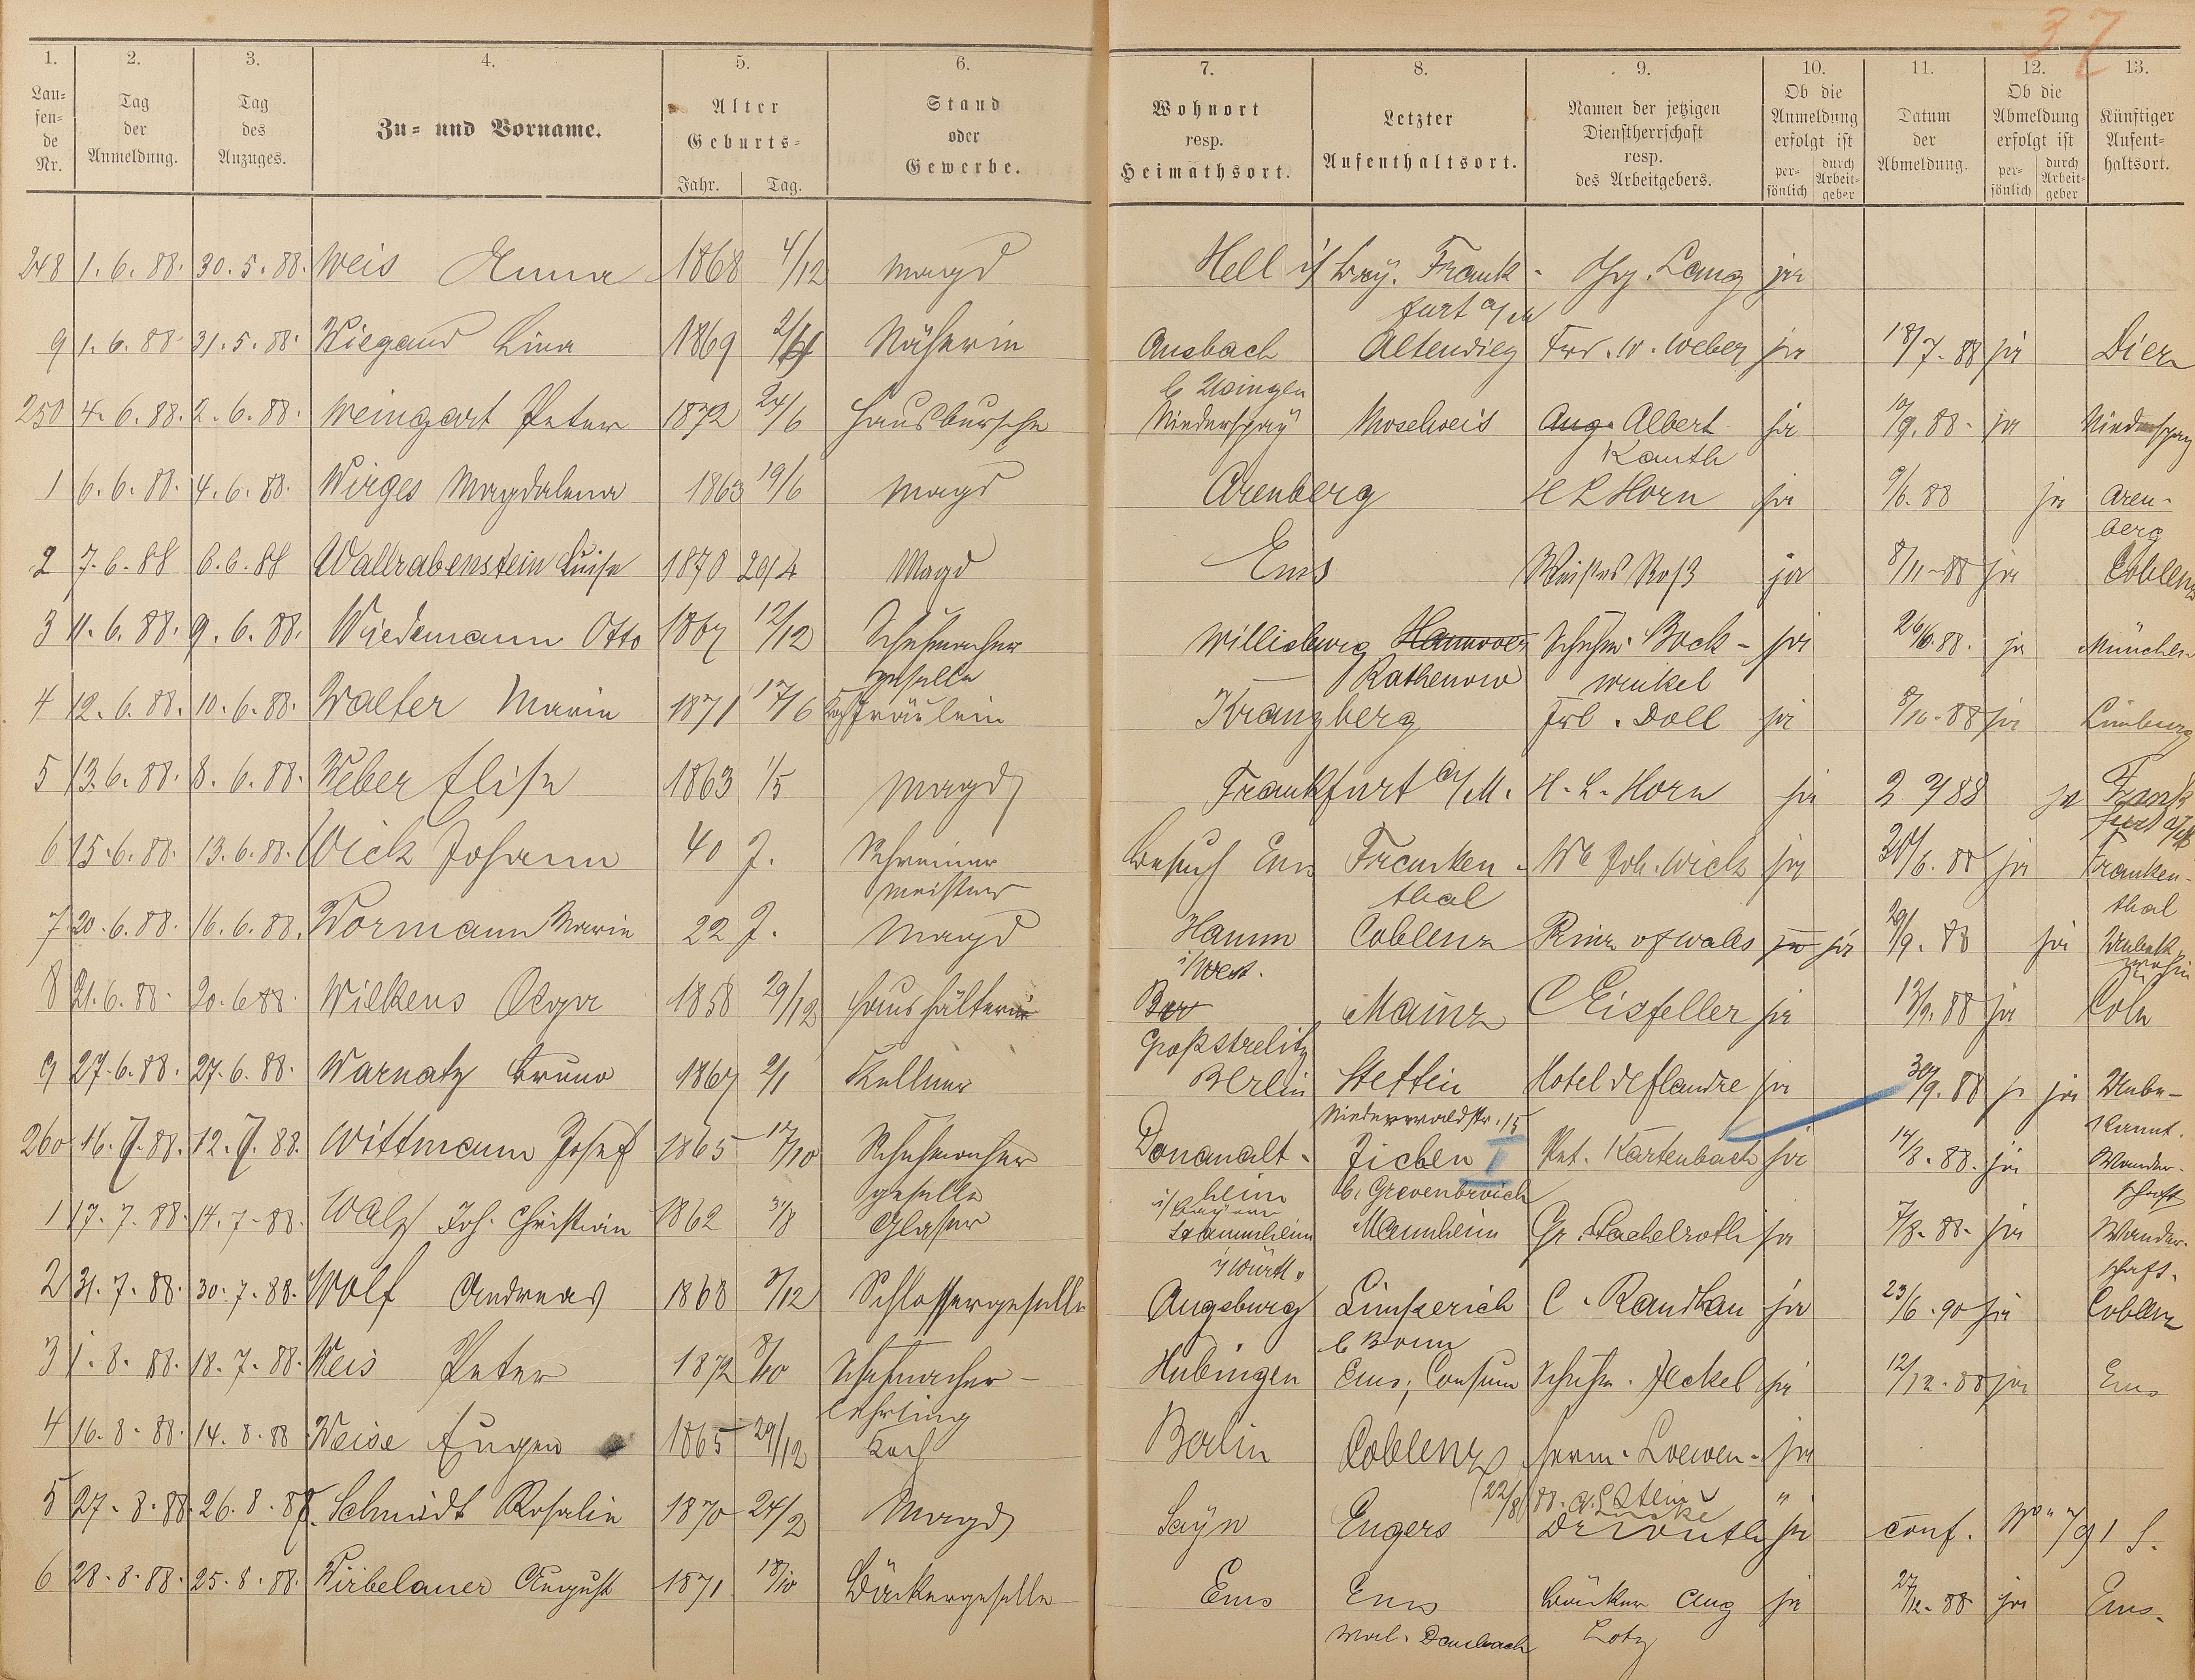 37
1. 2. 3. 4. 5. 6. 7. 8. 9. 10. 11. 12. 13.
Lau=fen=de Nr. Tag der Anmeldung. Tag des Anzuges. Zu= und Vorname. Alter Geburts= Jahr. Tag. Stand oder Gewerbe. Wohnort resp. Heimathsort. Letzter Aufenthaltsort. Namen der jetzigen Dienstherrschaft resp. des Arbeitgebers. Ob die Anmeldung erfolgt ist per=sönlich durch Arbeit=geber Datum der Abmeldung. Ob die Abmeldung erfolgt ist per=sönlich durch Arbeit=geber Künftiger Aufent=haltsort.
248 1. 6. 88. 30. 5. 88. Weis Anna 1868 4/12 Magd Hell i/ Bay. Frank- Lang ja
furt a/M
9 1. 6. 88. 31. 5. 88. Wiegand Lina 1869 Näherin Ansbach Altendiez W. Weber ja 18/7. 88 ja Diez
b Usingen
250 4. 6. 88. 2. 6. 88. Weingart Peter 1872 24/6 Hausbursche Niederspay Moselweis Aug. Albert ja 88. ja Niederspay
Kauth
1 6. 6. 88. 4. 6. 88. Wirges Magdalena 1863 19/6 Magd Arenberg H L Horn ja 9/6. 88 ja Aren-
berg
2 7. 6. 88 6. 6. 88 Wallrabenstein Luise 1870 29/4 Magd Ems Weißes Roß ja 8/11 88 ja Coblenz
3 11. 6. 88. 9. 6. 88. Wiedemann Otto 1867 12/12 Schuhmacher Hannover Schuhm. Bock- ja 26/6. 88. ja München
geselle Rathenow winkel
4 12. 6. 88. 10. 6. 88. Walter Marie 1871 17/6 Fräulein Kranzberg Frl. Doll ja 8/10. 88 ja Limburg
5 13. 6. 88. 8. 6. 88. Weber Elise 1863 1/5 Magd Frankfurt a/M. H. L. Horn ja 2 7/88 ja Frank
furt a/M
6 15. 6. 88. 13. 6. 88. Wick Johann 40 J. Schreiner Besuch Ems Franken- Wb Joh. Wick ja 6. 88 ja Franken-
meister thal thal
7 20. 6. 88. 16. 6. 88. Wormann Marie 22 J. Magd Hamm Coblenz Prinz of Wales ja ja 29/9. 88 ja Unbek
i/West. wohin
8 21. 6. 88. 20. 6 88. Wilkens Olga 1858 29/12 Haushälterin Mainz C Eisfeller ja 13/9. 88 ja Coln
Großstrelitz
9 27. 6. 88. 27. 6. 88. Warnatz Bruno 1867 2/1 Kellner Berlin Stettin Hotel de flandre ja 30/9. 88 ja Unbe-
Niederwaldstr. 15 kannt.
260 16. 7. 88. 12. 7. 88. Wittmann Josef 1865 17/10 Schuhmacher Donaualt- I Pet. Kartenbach ja 14/8. 88. ja Wander-
geselle heim b. Grevenbroich schaft
i/Bayern
1 17. 7. 88. 14. 7. 88. Walz Joh. Christian 1862 31/8 Glaser Stammheim Mannheim Gr. Stachelroth ja 7/8. 88. ja Wander-
i Württ. schaft.
2 31. 7. 88. 30. 7. 88. Wolf Andreas 1868 5/12 Schlossergeselle Augsburg C. Randhan ja 23/6. 90 ja Coblenz
b Bonn
3 1. 8. 88. 18. 7. 88. Weis Peter 1872 8/10 Schuhmacher- Hubingen Ems, Consum Schuhm. Jeckel ja 12/12. 88 ja Ems
lehrling
4 16. 8. 88. 14. 8. 88 Weise Eugen 1865 29/12 Koch Berlin Coblenz Herm. Loewen- ja
(22/8) 88. stein "
5 27. 8. 88. 26. 8. 88. Schmidt Rosalie 1870 24/2 Magd Sayn Engers Dr Vonth ja conf. 7/91 S.
6 28. 8. 88. 25. 8. 88. Wirbelauer August 1871 18/10 Bäckergeselle Ems Ems Bäcker Aug ja 27/12. 88 ja Ems.
Mal. Dausbach Lotz